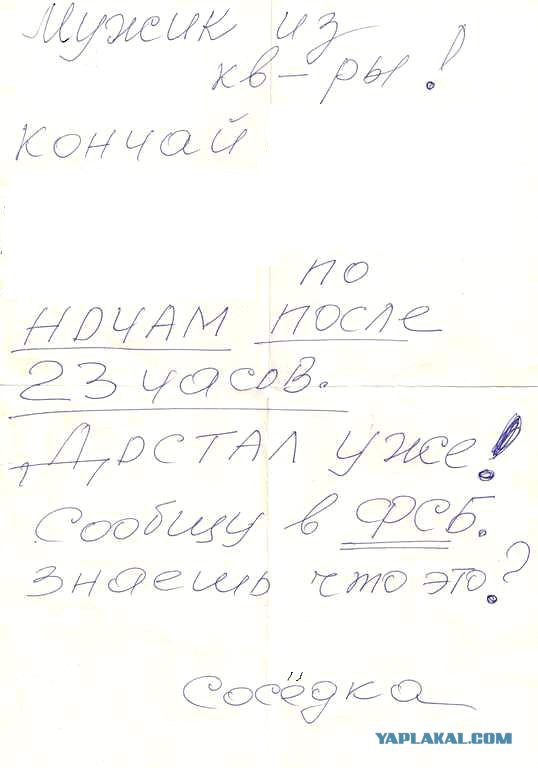 Мужик из
кв-ры!
кончай
по
НОЧАМ после
23 часов.
ДОСТАЛ уже!
Сообщу в ФСБ.
Знаешь что это?
Соседка
YAPLAKAL.COM